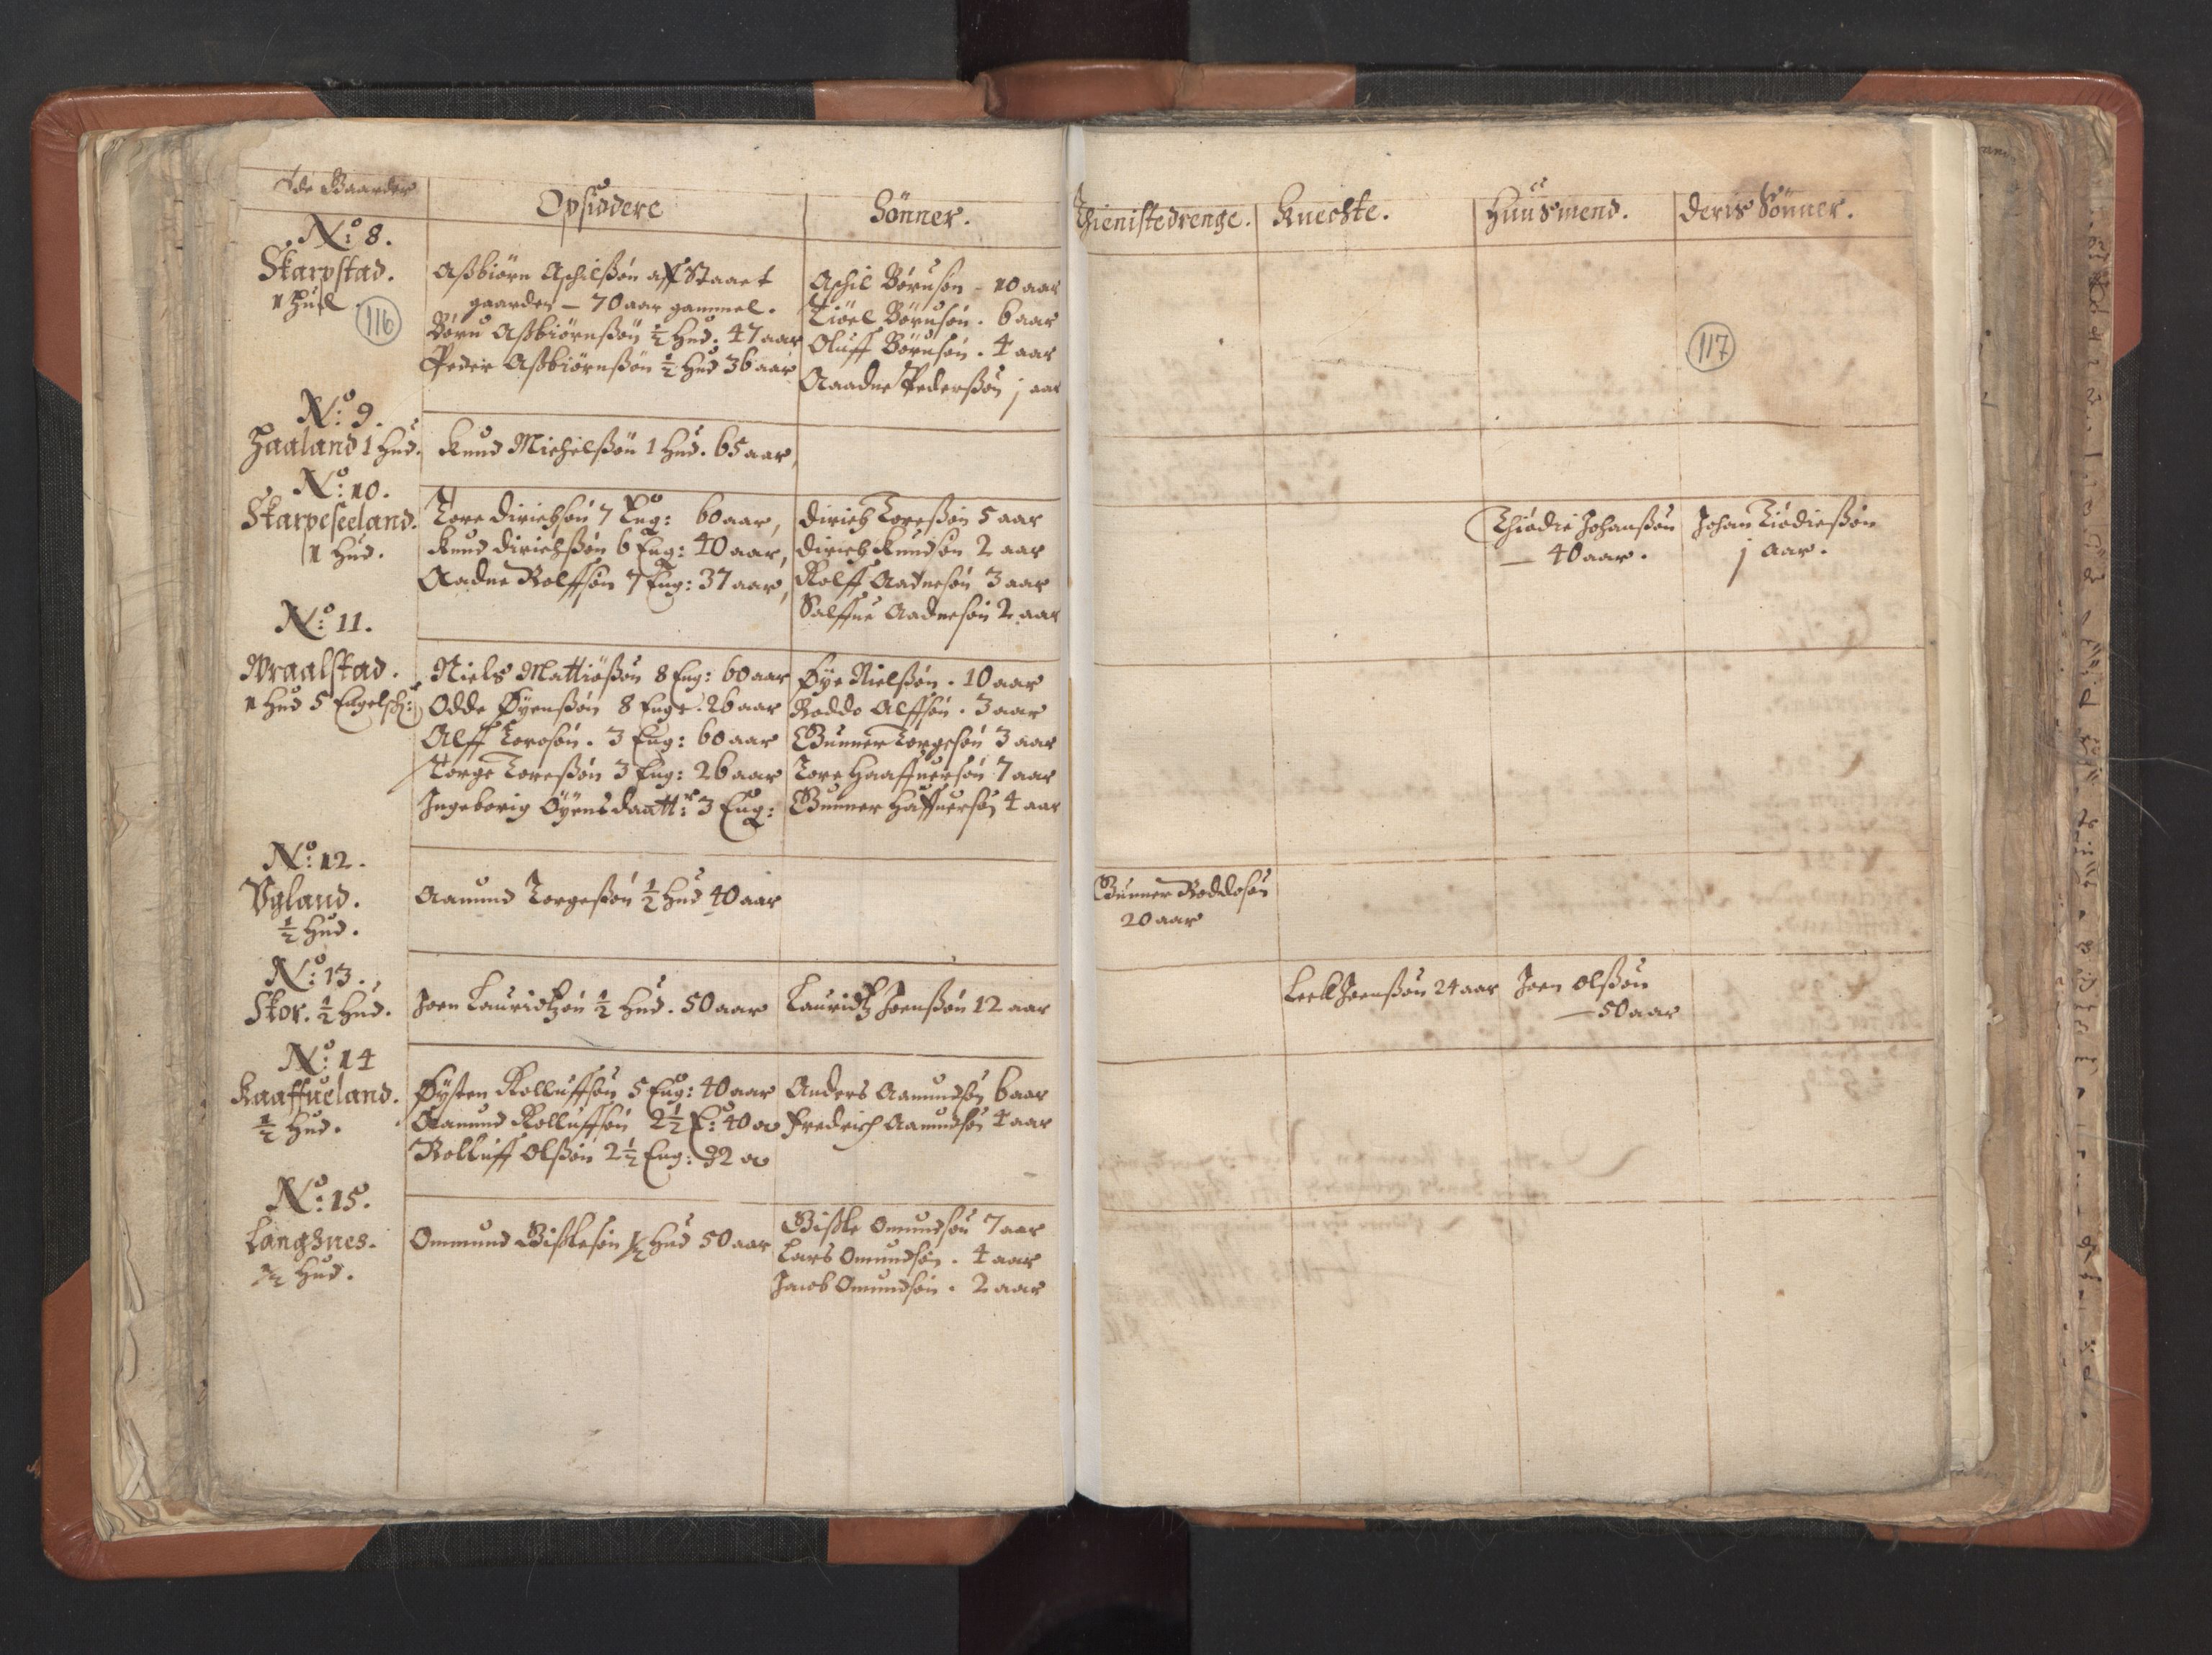 Ode Gaarder
Opsiddere
Sönner.
Thienistedrenge.
Knechte.
Huusmend.
Deris Sönner.
No: 8.
Skarpstad.
1 Hud
116
Aßbiörn Aschilßön aff Staaet
gaarden — 70 aar gammel.
Böru Aßbiörnßön ½ Hud. 47 aar
Peder Aßbiörnßön ½ Hud 36 aar
Aschil Börusön - 10 aar
Tiöel Börusön. 6 aar
Oluff Börusön. 4 aar
Aadne Pederßön j aar
117
No: 9.
Haaland 1 Hud.
Knud Michelßön 1 Hud. 65 aar,
No: 10.
Skarpeseeland.
1 Hud.
Tore Dirichsön 7 Eng: 60 aar,
Knud Dirichßön 6 Eng: 40 aar,
Aadne Rolffsön 7 Eng: 37 aar,
Dirich Toreßön 5 aar
Dirich Knudsön 2 aar
Rolff Aadnesön 3 aar
Salffue Aadnesön 2 aar
Thiödie Johanßön
— 40 aar.
Johan Tiödießön
j Aar.
No: 11.
Wraalstad.
1 Hud 5 Engelsch:
Niels Mattiößön 8 Eng: 60 aar
Odde Øyenßön 8 Enge. 26 aar
Alff Torosön. 3 Eng: 60 aar
Torge Toreßön 3 Eng: 26 aar
Ingeborig Öyensdaatt:r 3 Eng:
Øye Nielßön. 10 aar
Roddo Alffsön. 3 aar
Gunner Torgesön 3 aar
Tore Haaffuersön 7 aar
Gunner Haffuersön 4 aar
No: 12.
Vgland.
½ Hud.
Aamund Torgeßön ½ Hud 40 aar
Gunner Roddosön
20 aar
No: 13.
Skor. ½ Hud.
Joen Lauridtzön ½ Hud. 50 aar
Lauridtz Joenßön 12 aar
Keell Joenßön 24 aar
Joen Olßön
— 50 aar
No: 14
Raaffueland.
½ Hud.
Øysten Rolluffsön 5 Eng: 40 aar
Aamund Rolluffsön 2½ E: 40 a
Rolluff Olßön 2½ Eng: 32 a
Anders Aamundsön 6 aar
Fredrich Aamundsön 4 aar
No: 15.
Langsnes.
½ Hud.
Ommund Gißlesön ½ Hud 50 aar
Gißle Omundsön 7 aar
Lars Omundsön. 4 aar
Jacob Omundsön. 2 aar